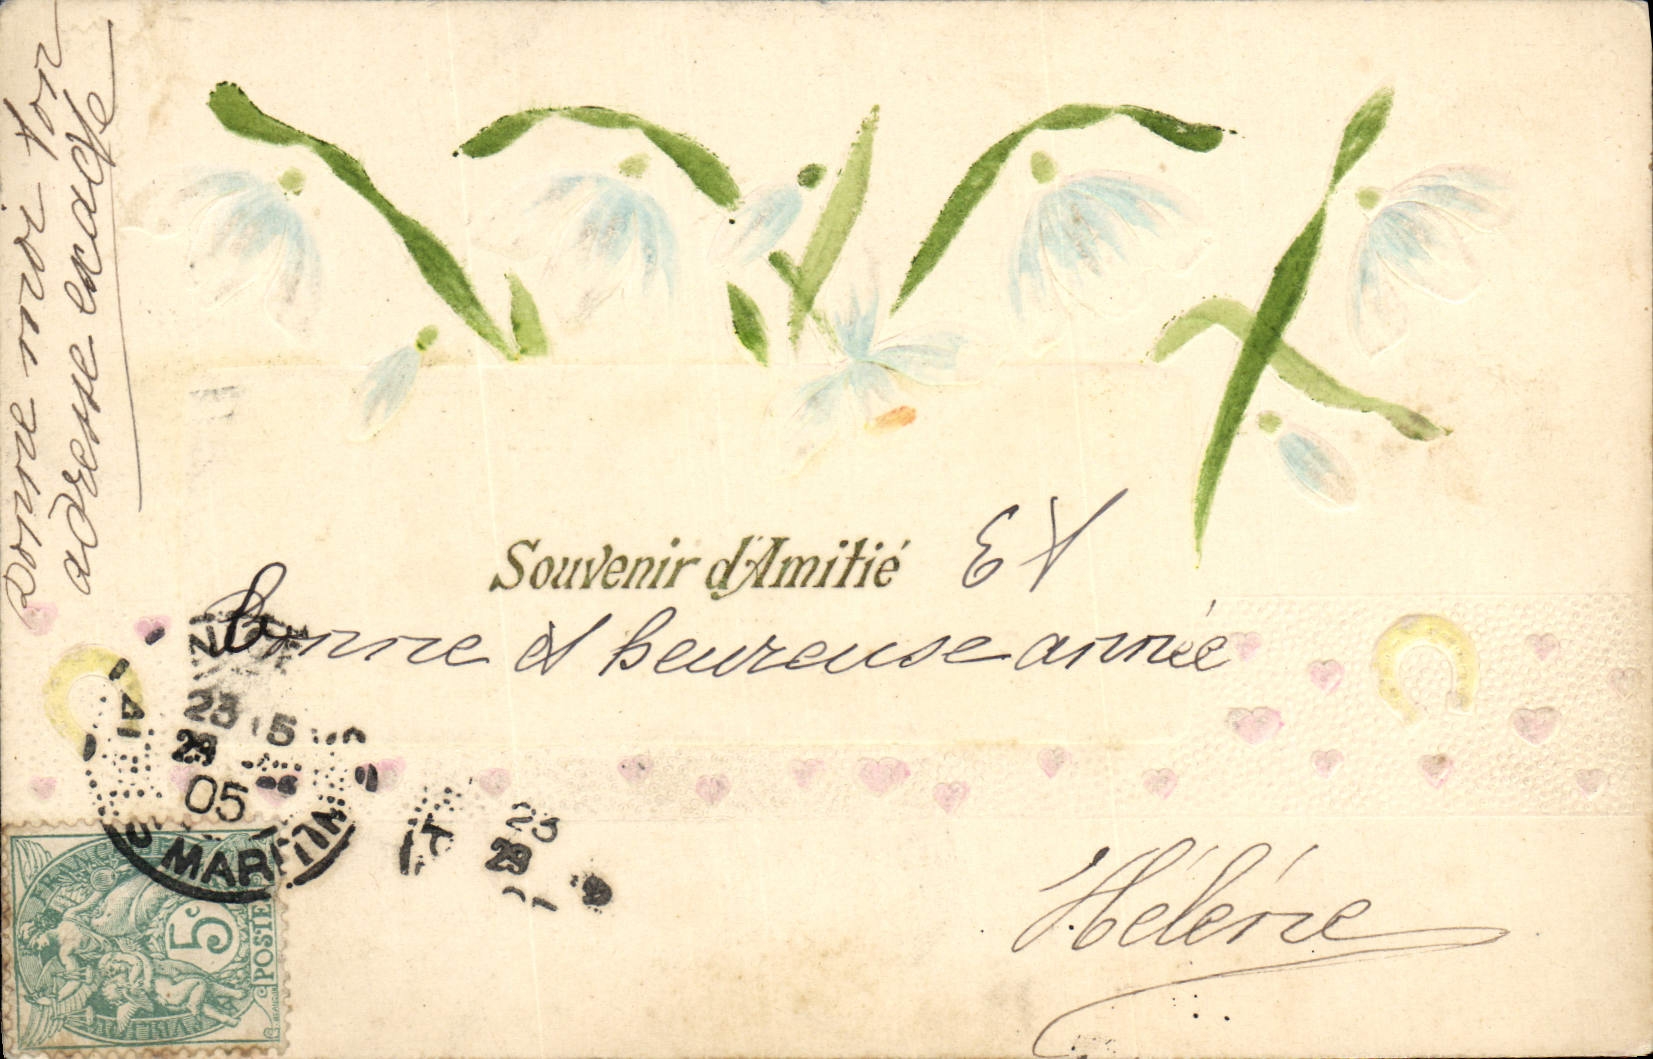 Donne moi ton
adresse exacte
Souvenir d'Amitié Et
Bonne et heureuse année
Hélène
23
29
05
MARTIN
23
29
5c
POSTES